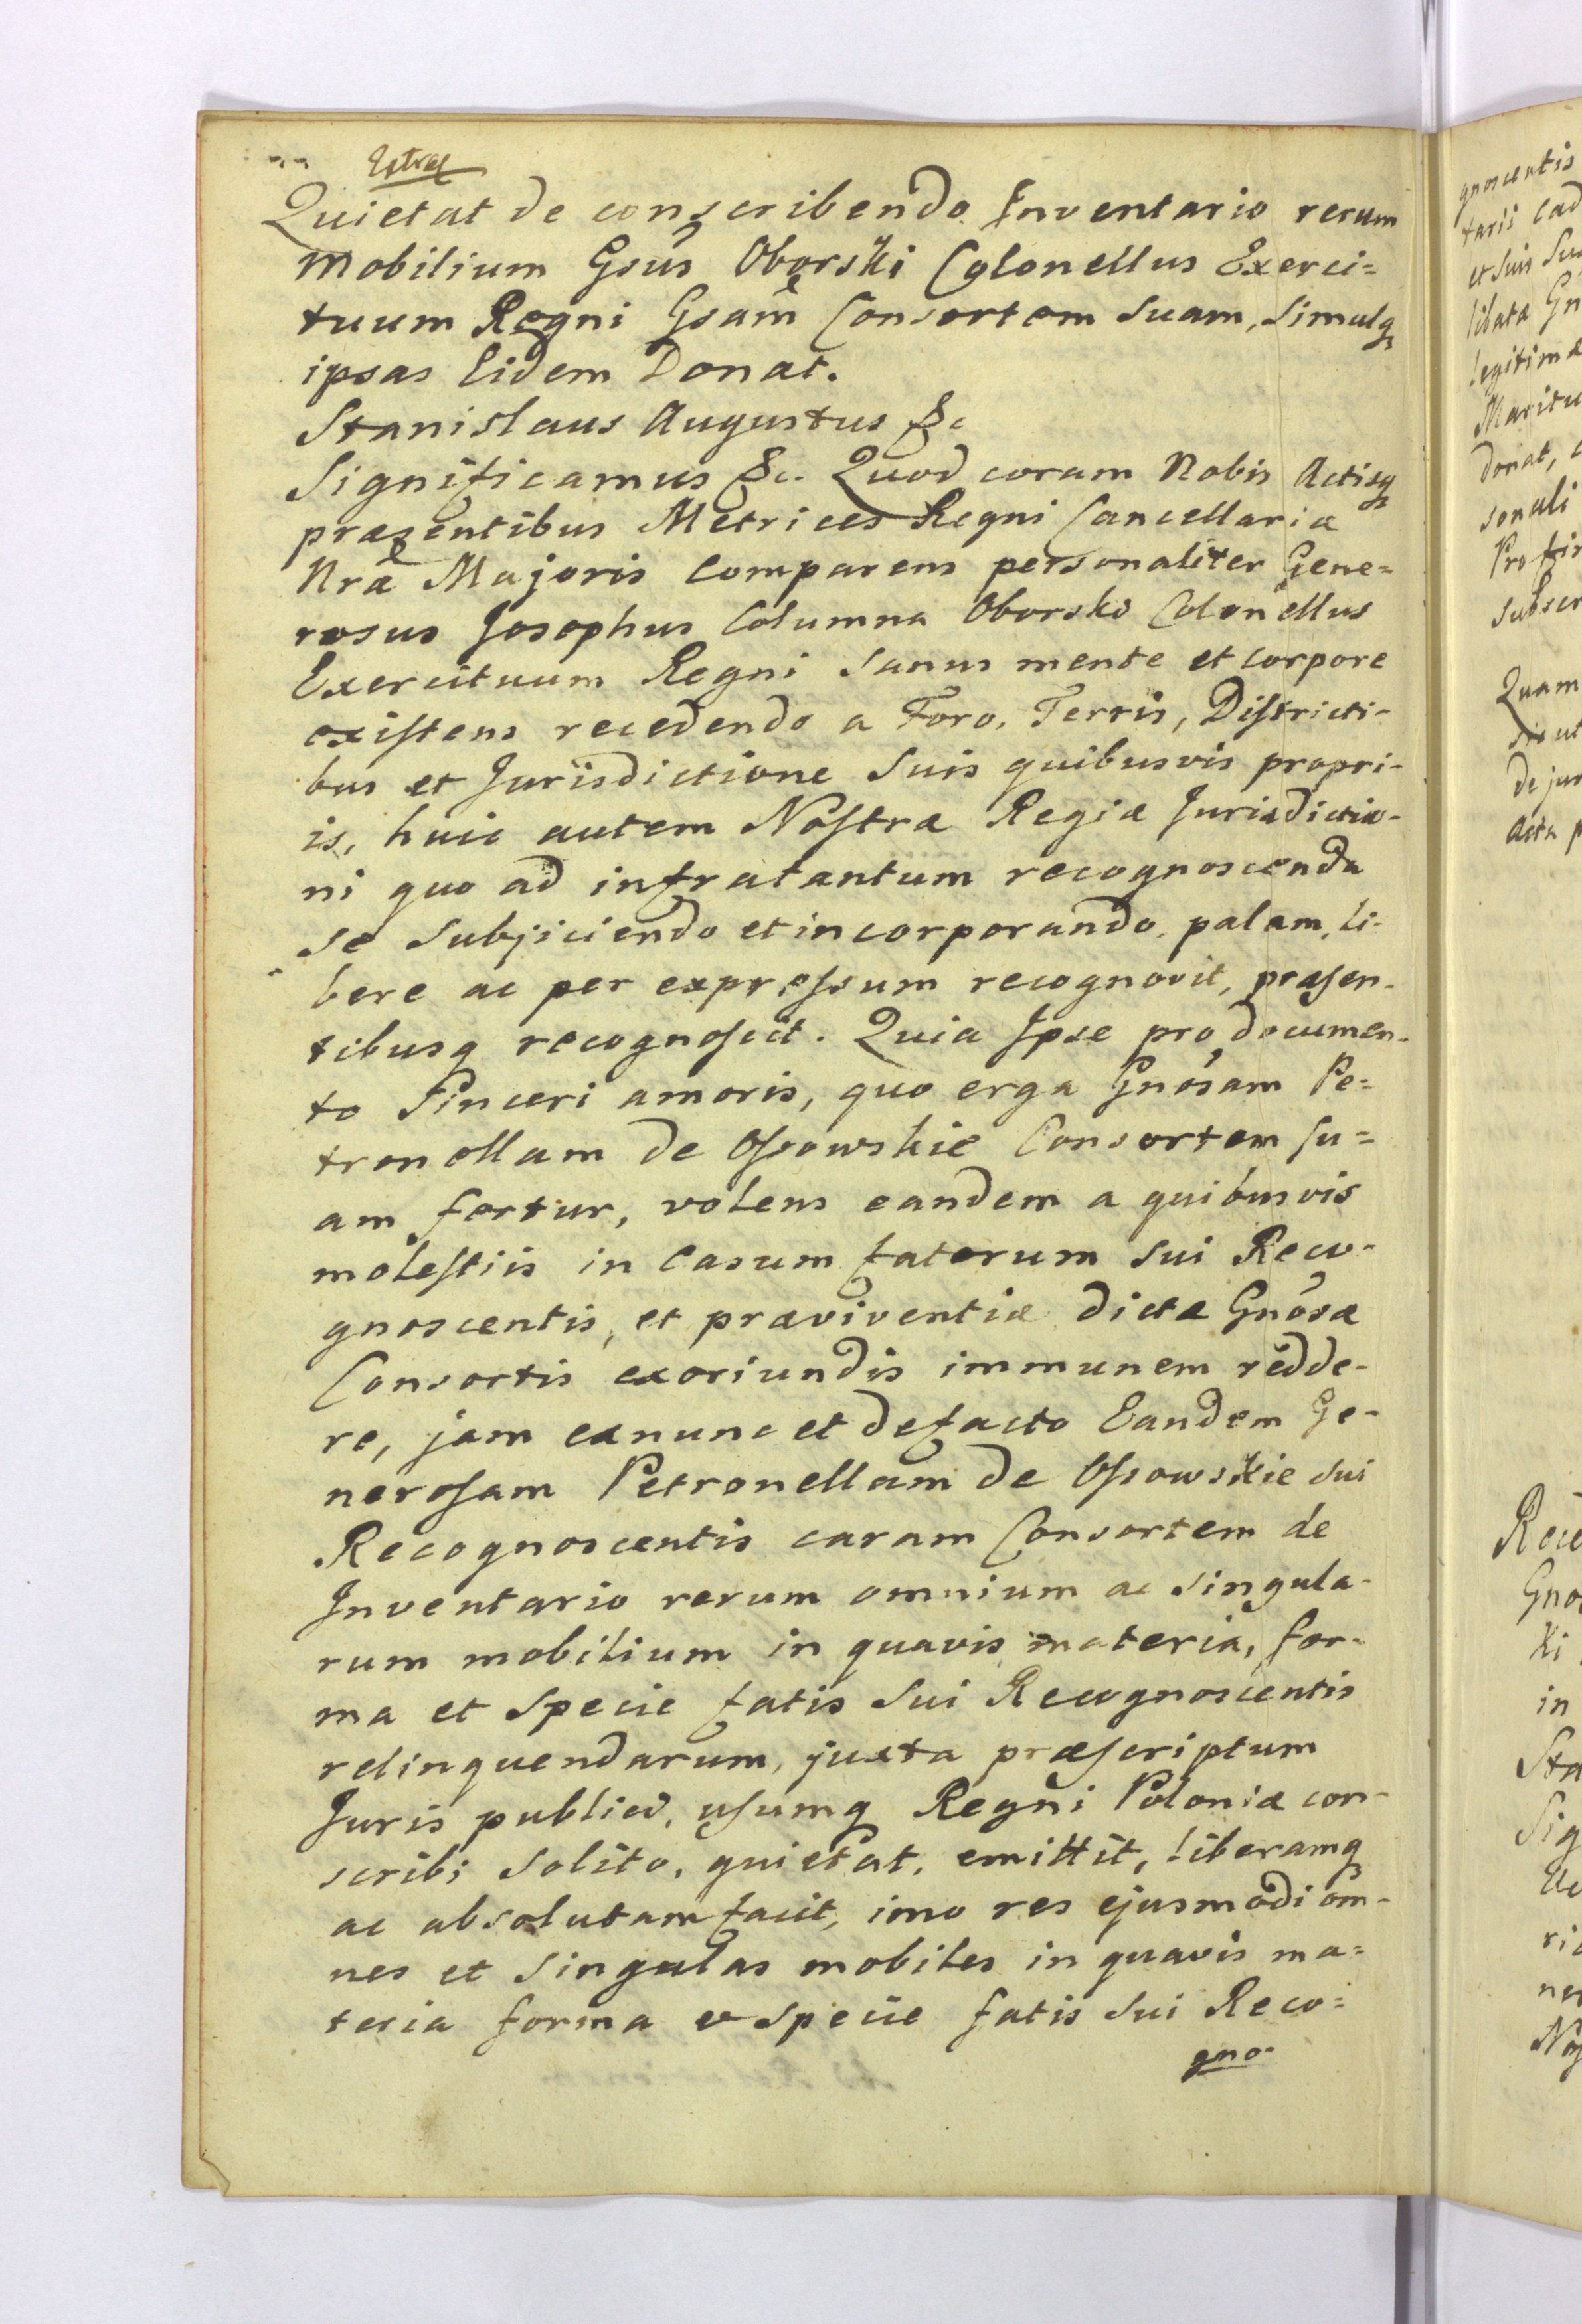 Extrae
Quietat de conscribendo Inventario rerum
mobilium Gsus Oborski Colonellus Exerci=
tuum Regni Gsam Consortem Suam, Simulq
ipsas Eidem Donat.
Stanislaus Augustus &c
Significamus &c. Quod coram Nobis Actisq
præsentibus Metrices Regni Cancellariæ
Nræ Majoris Comparens personaliter Gene=
rosus Josephus Columna Oborski Colonellus
Exercituum Regni Sanus mente et corpore
existens recedendo a Foro, Terris, Districti-
bus et Jurisdictione Suis quibusvis propri-
is, huic autem Nostræ Regiæ Jurisdictio-
ni quo ad infra tantum recognoscenda
se Subjiciendo et incorporando, palam, li-
bere ac per expressum recognovit, præsen-
tibusq recognoscit. Quia Ipse pro documen-
to Sinceri amoris, quo erga Gnosam Pe=
tronellam de Ossowskie Consortem su=
am fertur, volens eandem a quibusvis
molestiis in Casum fatorum sui Reco-
gnoscentis, et præviventiæ dictæ Gnosæ
Consortis exoriundis immunem redde-
re, jam exnunc et defacto Eandem Ge-
nerosam Petronellam de Ossowskie sui
Recognoscentis caram Consortem de
Inventario rerum omnium ac singula-
rum mobilium in quavis materia, for-
ma et Specie fatis Sui Recognoscentis
relinquendarum, juxta præscriptum
Juris publici, usumq Regni Poloniæ con-
scribi Solito, quietat, emittit, liberamq
ac absolutam facit, imo res ejusmodi om-
nes et Singulas mobiles in quavis ma=
teria forma et Specie fatis Sui Reco=
gno-
gnoscentis
Maritu
donat,
sonali
Quam
de jur
acta p
in